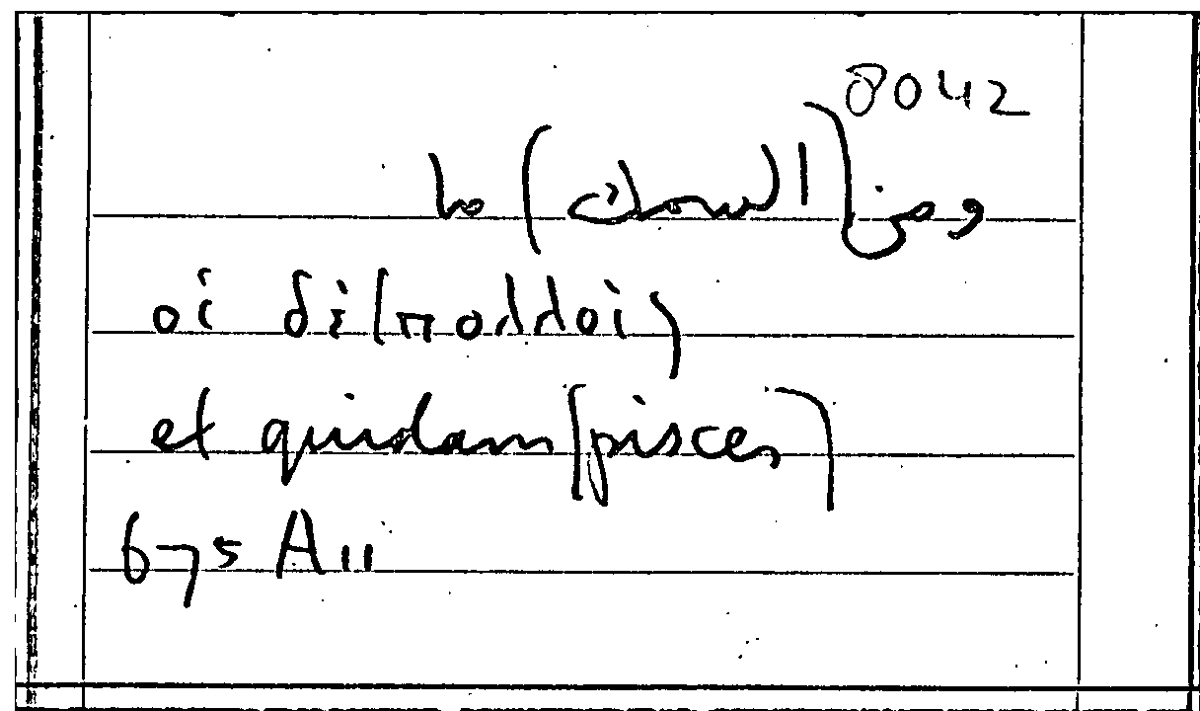 8042
ومن (السمك) ما
οἱ δὲ (πολλοὶ)
et quidam (pisces)
675 A 11